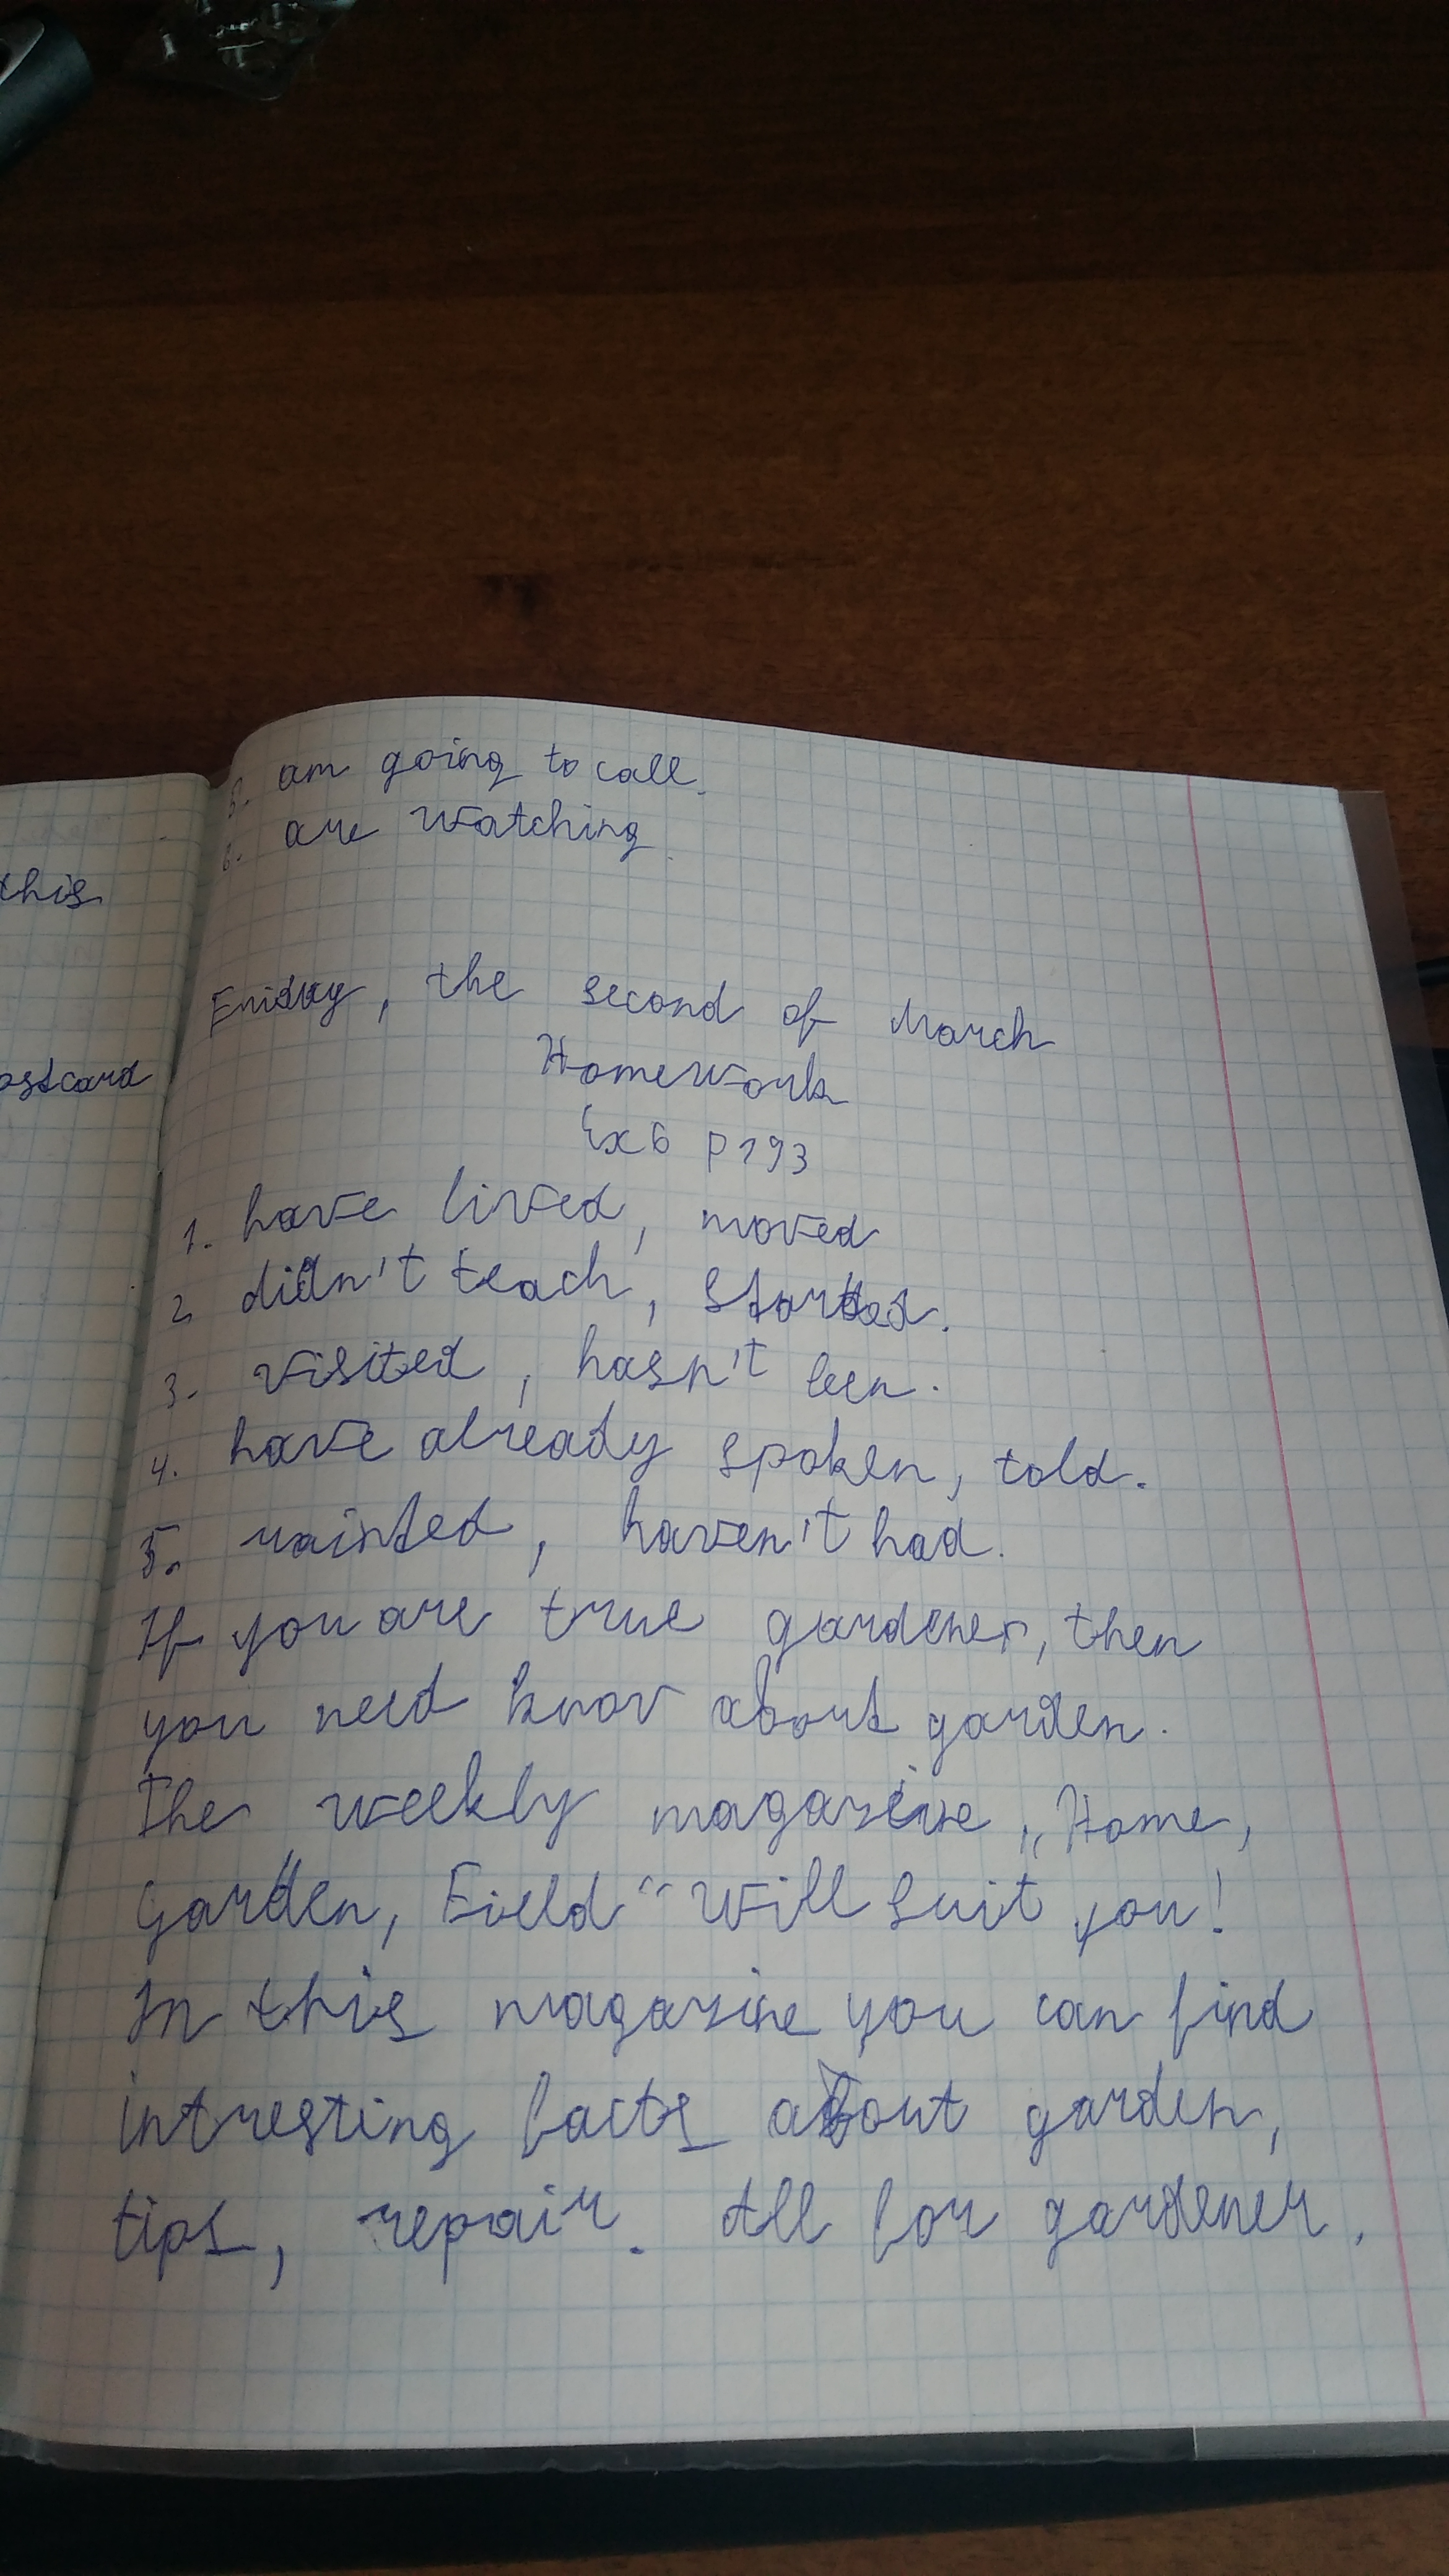 this
ostcard
5. am going to call.
6. are watching.
Friday, the second of March
Homework
Ex 6 p 193
1. have lived, moved
2 didn't teach, started.
3. visited, hasn't been.
4. have already spoken, told.
5. rainted, haven't had.
If you are true gardener, then
you need know about garden.
The weekly magazine „Home,
Garden, Field“ will suit you!
In this magazine you can find
intresting facts about garden,
tips, repair. All for gardener.